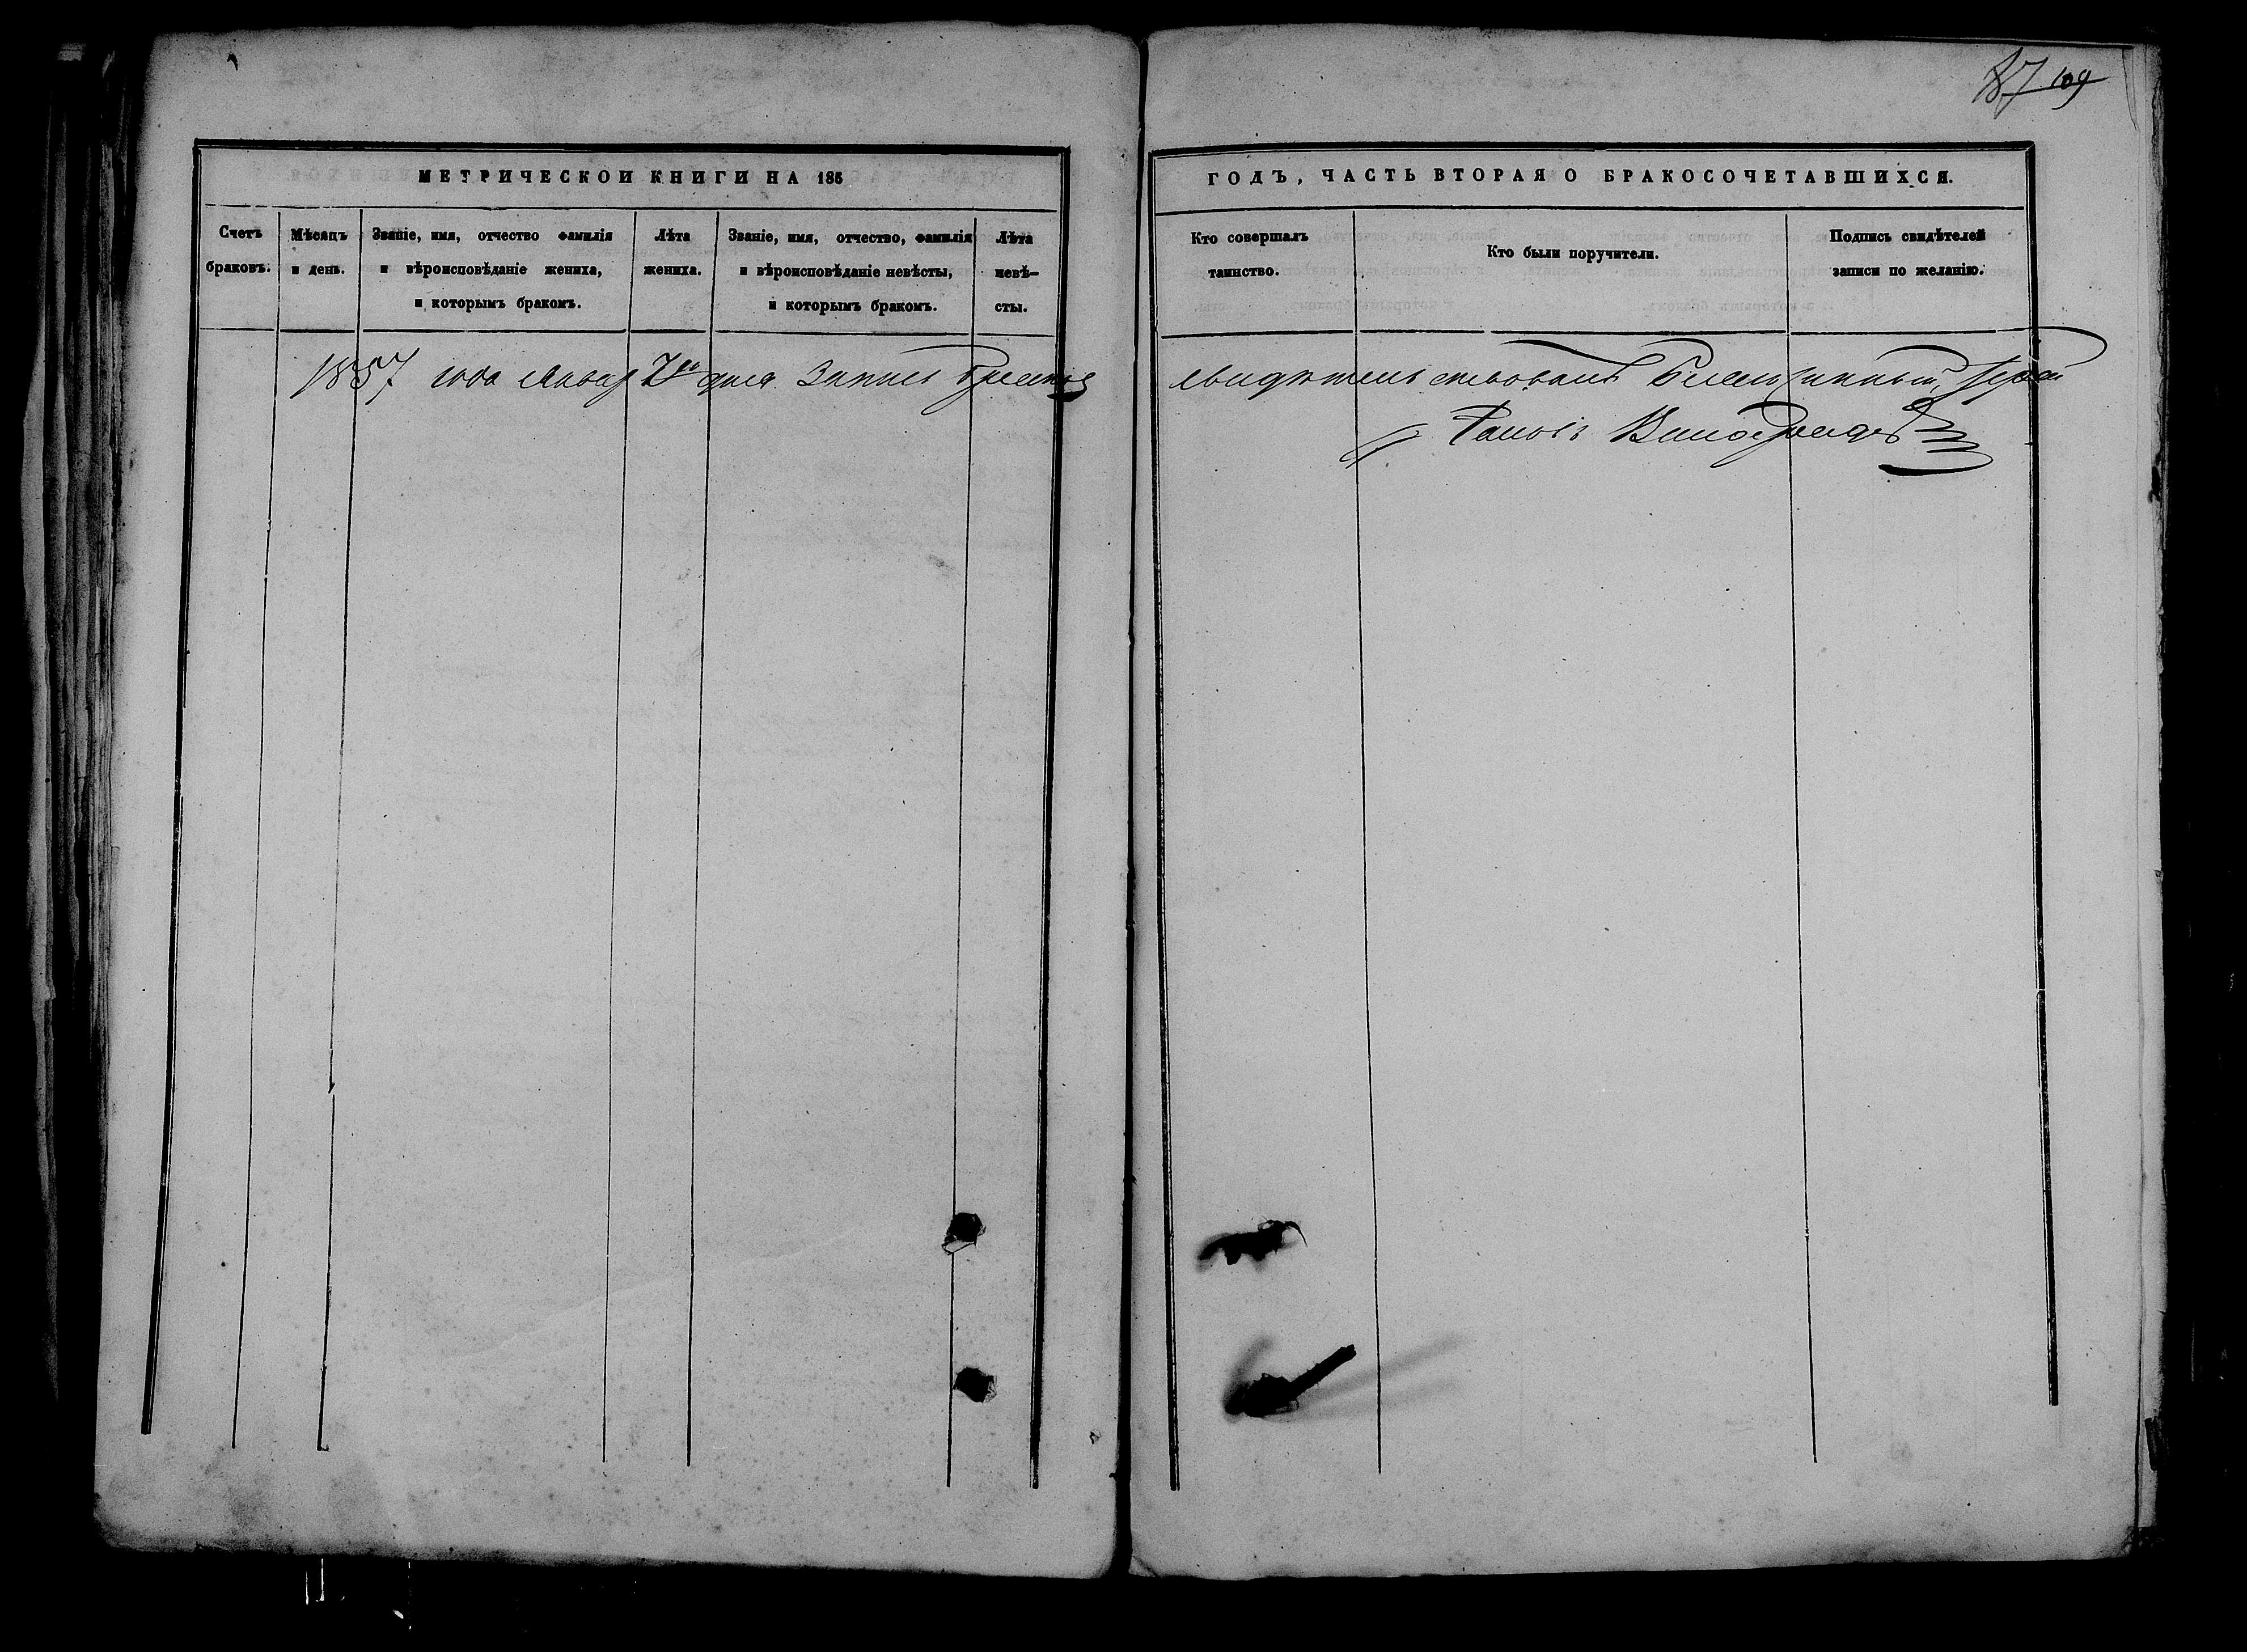 87 109
МЕТРИЧЕСКОЙ КНИГИ НА 185
ГОДЪ, ЧАСТЬ ВТОРАЯ О БРАКОСОЧЕТАВШИХСЯ.
Счетъ
браковъ.
Мѣсяцъ
и день.
Званіе, имя, отчество фамилія
и вѣроисповѣданіе жениха,
и которымъ бракомъ.
Лѣта
жениха.
Званіе, имя, отчество, фамилія
и вѣроисповѣданіе невѣсты,
и которымъ бракомъ.
Лѣта
невѣ-
сты.
Кто совершалъ
таинство.
Кто были поручители.
Подпись свидѣтелей
записи по желанію.
1857 года Январ 7го дня Запись браков
свидѣтельствовалъ Благочинный, Іерей
Виноградов